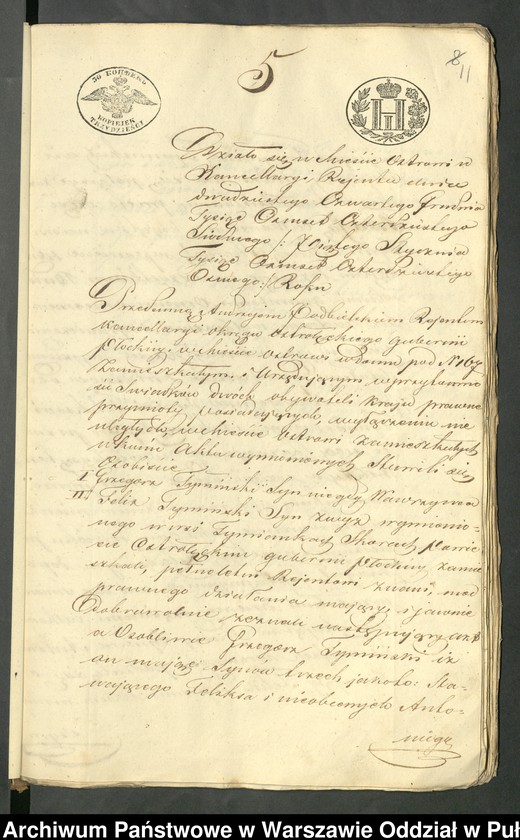 5
8
11
30 КОПѢЕКЪ
KOPIEJEK
TRZYDZIEŚCI
Działo się w Mieście Ostrowi w
Kancellaryi Rejenta dnia
dwudziestego Czwartego Grudnia
Tysiąc Ośmset Czterdziestego
Siódmego /: Stycznia
Tysiąc Ośmset Czterdziestego
Osmego :/ Roku
Przedemną Andrzejem Podbielskim Rejentem
Kancellaryi okręgu Ostrołęckiego gubernii
Płockiej, w Mieście Ostrowi w domu pod N 167
zamieszkałym i Urzędującym w przytomno
ści Świadków dwóch, obywateli kraju prawne
przymioty posiadających, wyłączeniu nie
uległych, w Mieście Ostrowi zamieszkałych
w końcu Aktu wymienionych Stawili się
Osobiście
I Grzegorz Tymiński Syn niegdy Wawrzyńca
II Felix Tymiński Syn wymienio-
nego w wsi Tymiankach Skorach Powie
cie Ostrołęckim gubernii Płockiej zamie
szkali, pełnoletni Rejentowi znani, moc
prawnego działania mający, i jawnie
Dobrowolnie zeznali następujący akt
a Osobliwie Grzegorz Tymiński iż
on mając Synów trzech jakoto: Sta-
wającego Felixa i nieobecnych Anto-
niego
Archiwum Państwowe w Warszawie Oddział w Puł